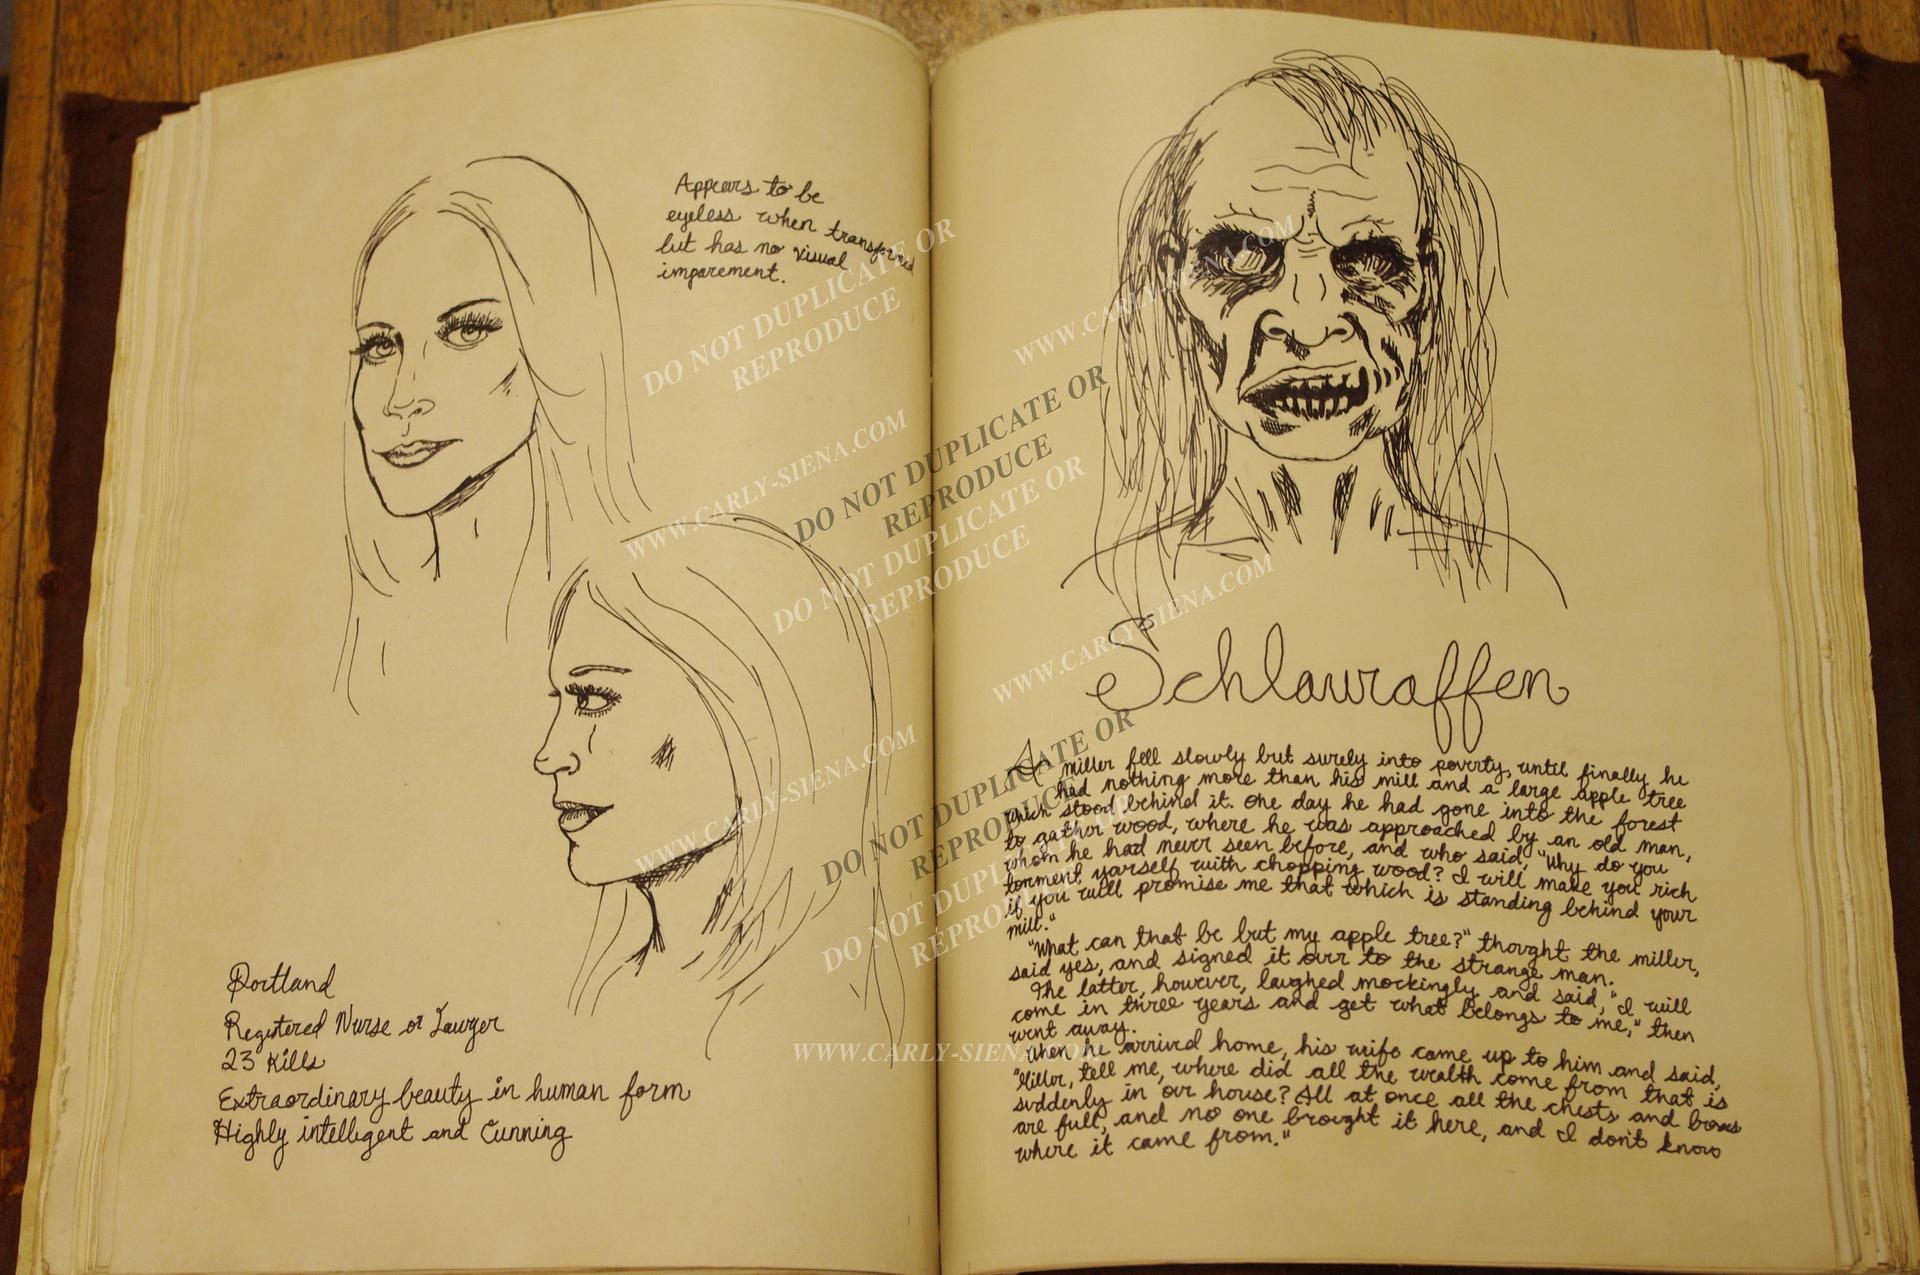 Appears to be
eyeless when transformed
but has no visual
imparement.
Portland
Registered Nurse or Lawyer
23 Kills
Extraordinary beauty in human form
Highly intelligent and Cunning
Schlauraffen
A miller fell slowly but surely into poverty, until finally he
had nothing more than his mill and a large apple tree
which stood behind it. One day he had gone into the forest
to gather wood, where he was approached by an old man,
whom he had never seen before, and who said, "Why do you
torment yarself with chopping wood? I will make you rich
if you will promise me that which is standing behind your
mill."
"What can that be but my apple tree?" thought the miller,
said yes, and signed it over to the strange man.
The latter, however, laughed mockingly and said, "I will
come in three years and get what belongs to me," then
went away.
When he arrived home, his wife came up to him and said,
"Miller, tell me, where did all the wealth come from that is
suddenly in our house? All at once all the chests and boxes
are full, and no one brought it here, and I don't know
where it came from."
DO NOT DUPLICATE OR
REPRODUCE
WWW.CARLY-SIENA.COM
DO NOT DUPLICATE OR
REPRODUCE
WWW.CARLY-SIENA.COM
DO NOT DUPLICATE OR
REPRODUCE
WWW.CARLY-SIENA.COM
DO NOT DUPLICATE OR
REPRODUCE
WWW.CARLY-SIENA.COM
DO NOT DUPLICATE OR
REPRODUCE
WWW.CARLY-SIENA.COM